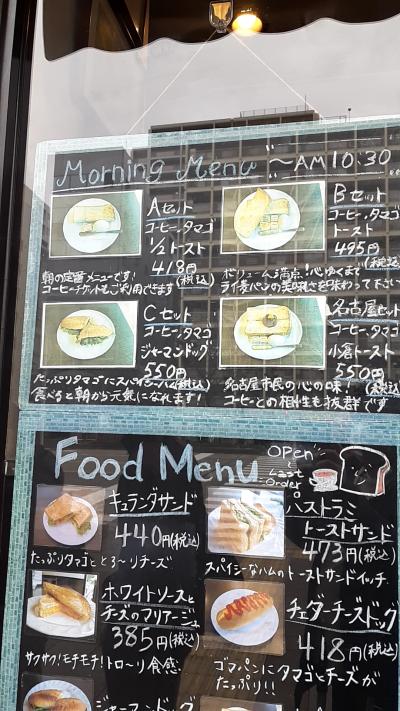 Morning Menu ～AM10:30
Aセット
コーヒー,タマゴ
1/2トースト
418円
(税込)
朝の定番メニューです!
コーヒーチケットもご利用できます
Bセット
コーヒー,タマゴ
トースト
495円
(税込)
ボリューム満点!心ゆくまで
ライ麦パンの美味さを味わって下さい
Cセット
コーヒー,タマゴ
ジャーマンドッグ
550円
(税込)
たっぷりタマゴにスパイシーハム
食べると朝から元気になれます!
名古屋セット
コーヒー,タマゴ
小倉トースト
550円
(税込)
名古屋市民の心の味!
コーヒーとの相性も抜群です
Food Menu
OPEN
Last
Order
キュランダサンド
440円(税込)
たっぷりタマゴととろ～りチーズ
パストラミ
トーストサンド
473円(税込)
スパイシーなハムのトーストサンドイッチ
ホワイトソースと
チーズのマリアージュ
385円(税込)
サクサク!モチモチ!トローリ食感
チェダーチーズドッグ
418円(税込)
ゴマパンにタマゴとチーズが
たっぷり!!
ジャーマンドッグ